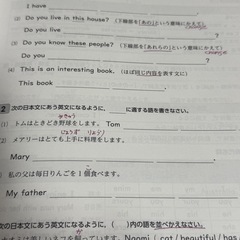 I have
(2) Do you live in this house? (下線部を「あの」という意味にかえて)
Do you live ?
(3) Do you know these people? (下線部を「あれらの」という意味にかえて)
Do you ?
(4) This is an interesting book. (ほぼ同じ内容を表す文に)
This book .
2 次の日本文にあう英文になるように、 に適する語を書きなさい。
(1) トムはときどき野球をします。 Tom
(2) メアリーはとても上手に料理をします。
Mary .
私の父は毎日りんごを1個食べます。
My father
次の日本文にあう英文になるように、( )内の語を並べかえなさい。
Naomi ( cat / beautiful / has